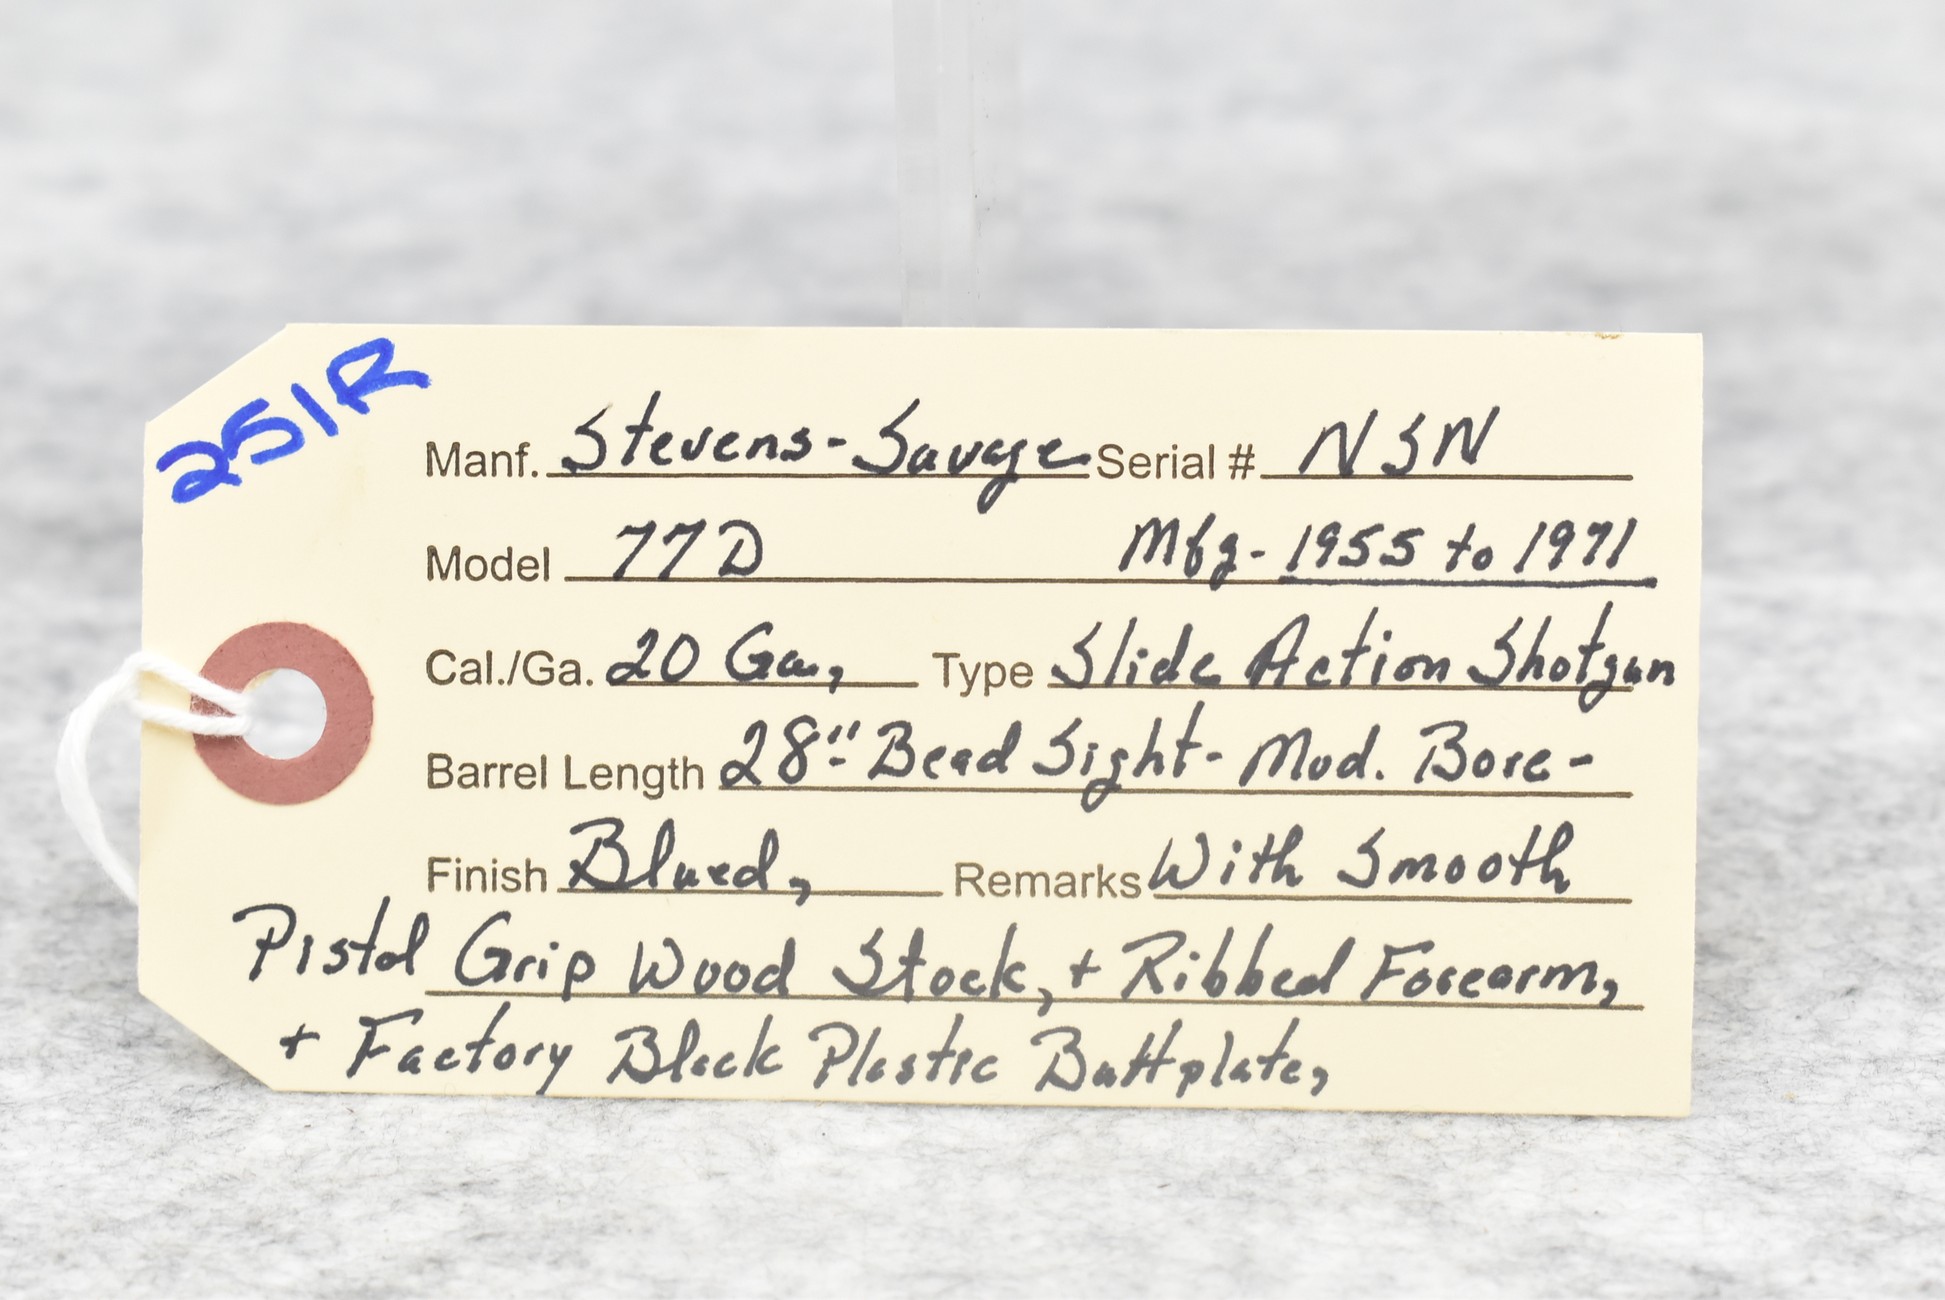 251R
Manf. Stevens-Savage Serial # NSN
Model 77D Mfg- 1955 to 1971
Cal./Ga. 20 Ga, Type Slide Action Shotgun
Barrel Length 28"- Bead Sight- Mod. Bore-
Finish Blued, Remarks With Smooth
Pistol Grip Wood Stock, + Ribbed Forearm,
+ Factory Black Plastic Buttplate,